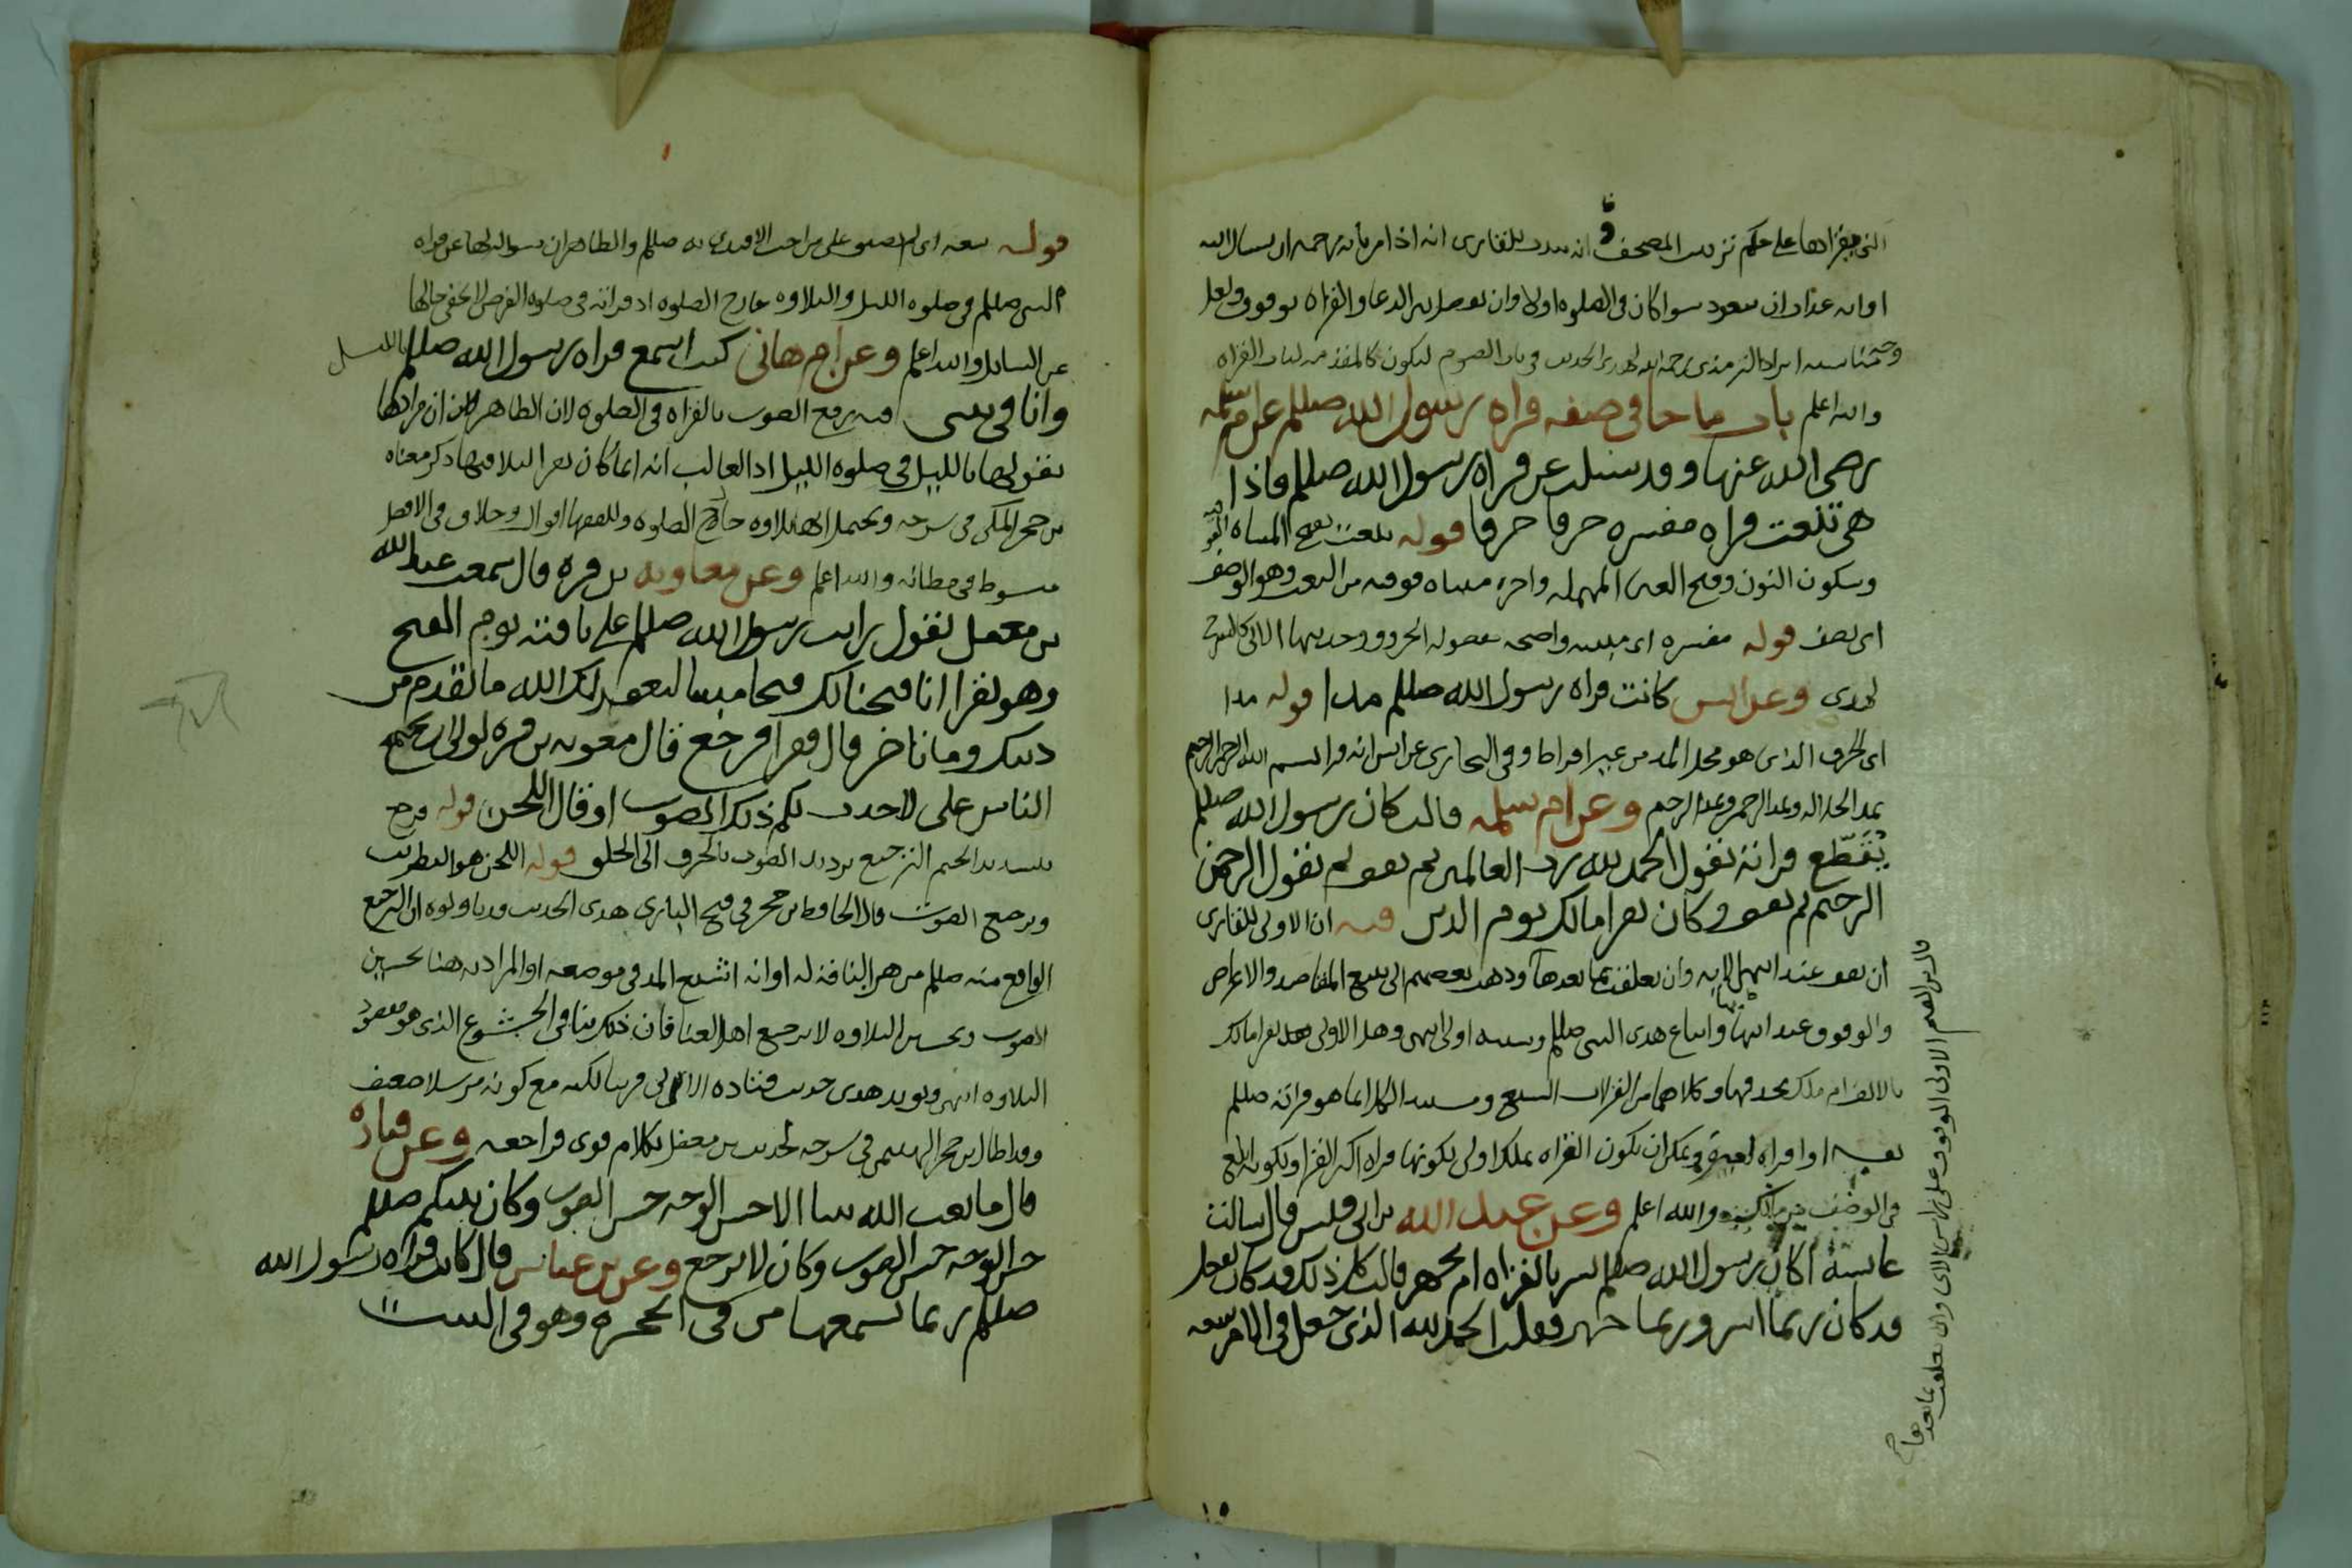 التي يقراها على حكم ترتيب المصحف وانه يندب للقاري انه اذا مر باية رحمة ان يسال الله
او اية عذاب ان يتعوذ سوا كان في الصلوه اولا وان الفصل بين الدعا والقراه بوقوف ولعل
وجه مناسبة ايراد الترمذي رحمه الله لهذا الحديث في باب الصوم ليكون كالمقدمه لباب القراه
والله اعلم باب ما جا في صفه قراه رسول الله صللم عن ام سلمه
رضي الله عنها وقد سئلت عن قراه رسول الله صللم فاذا
هي تنعت قراه مفسره حرفا حرفا قوله تنعت بفتح المثناه الفوقيه
وسكون النون وفتح العين المهمله واخره مثناه فوقيه من النعت وهو الوصف
اي تصف قوله مفسره اي مبينه واضحه مفصوله الحروف
وعن انس كانت قراه رسول الله صللم مدا قوله مدا
اي الحرف الذي هو محل المد من غير افراط وفي البخاري عن انس انه قرا بسم الله الرحمن الرحيم
يمد الجلاله ويمد الرحمن ويمد الرحيم وعن ام سلمه قالت كان رسول الله صللم
يقطع قراته يقول الحمد لله رب العالمين ثم يقف ثم يقول الرحمن
الرحيم ثم يقف وكان يقرا مالك يوم الدين فيه ان الاولى للقاري
ان يقف عند انتها الايه وان تعلقت بما بعدها وذهب بعضهم الى تتبع المقاصد والاغراض
والوقوف عند انتهائها واتباع هدي النبي صللم وسنته اولى انتهى وهل الاولى يقرا مالك
بالالف ام ملك بحذفها وكلاهما من القراات السبع
او قراه ويمكن ان تكون القراه بملك اولى لكونها قراه اكثر القرا ولكونه ابلغ
في الوصف من مالك والله اعلم وعن عبد الله بن ابي قيس قال سالت
عايشة اكان رسول الله صللم يسر بالقراه ام يجهر قالت كل ذلك قد كان يفعل
قد كان ربما اسر وربما جهر فقلت الحمد لله الذي جعل في الامر سعه
قال ابن القيم الاولى الوقوف على رؤس الاي وان تعلقت بما بعدها
قوله سعه والظاهر ان سواله لها عن قراه
النبي صللم في صلوه الليل والتلاوه خارج الصلوه اذ قراته في صلوه الفرض لا يخفى حالها
عن السايل والله اعلم وعن ام هاني كنت اسمع قراه رسول الله صللم بالليل
وانا في بيتي فيه رفع الصوت بالقراه في الصلوه لان الظاهر ان مرادها
بقولها بالليل في صلوه الليل اذ الغالب انه انما كان يقرا ليلا فيها ذكر معناه
بن حجر المكي في شرحه ويحتمل انها تلاوه خارج الصلوه وللفقها اقوال وخلاف في الافضل
مبسوط في مظانه والله اعلم وعن معاويه بن قره قال سمعت عبد الله
بن مغفل يقول رايت رسول الله صللم على ناقته يوم الفتح
وهو يقرا انا فتحنا لك فتحا مبينا ليغفر لك الله ما تقدم من
ذنبك وما تاخر قال فقرا فرجع قال معويه بن قره لولا ان يجتمع
الناس علي لاخذت لكم ذلك الصوت او قال اللحن قوله فرجع
بتشديد الجيم الترجيع ترديد الصوت بالحرف الى الحلق قوله اللحن هو التطريب
وترجيع الصوت قال الحافظ بن حجر في فتح الباري هذي الحديث
الواقع منه صللم من هز الناقة له او انه اشبع المد في موضعه او المراد به هنا تحسين
الصوت وتحسين التلاوه لا ترجيع اهل الغنا فان ذلك ينافي الخشوع الذي هو مقصود
التلاوه انتهى ويويد هذي حديث قتاده الاتي قريبا لكنه مع كونه مرسلا ضعيف
وقد اطال بن حجر الهيتمي في شرحه لحديث بن مغفل بكلام قوي فراجعه وعن قتاده
قال ما بعث الله نبيا الا حسن الوجه حسن الصوت وكان نبيكم صللم
حسن الوجه حسن الصوت وكان لا يرجع وعن بن عباس قال كانت قراه رسول الله
صللم ربما يسمعها من في الحجره وهو في البيت